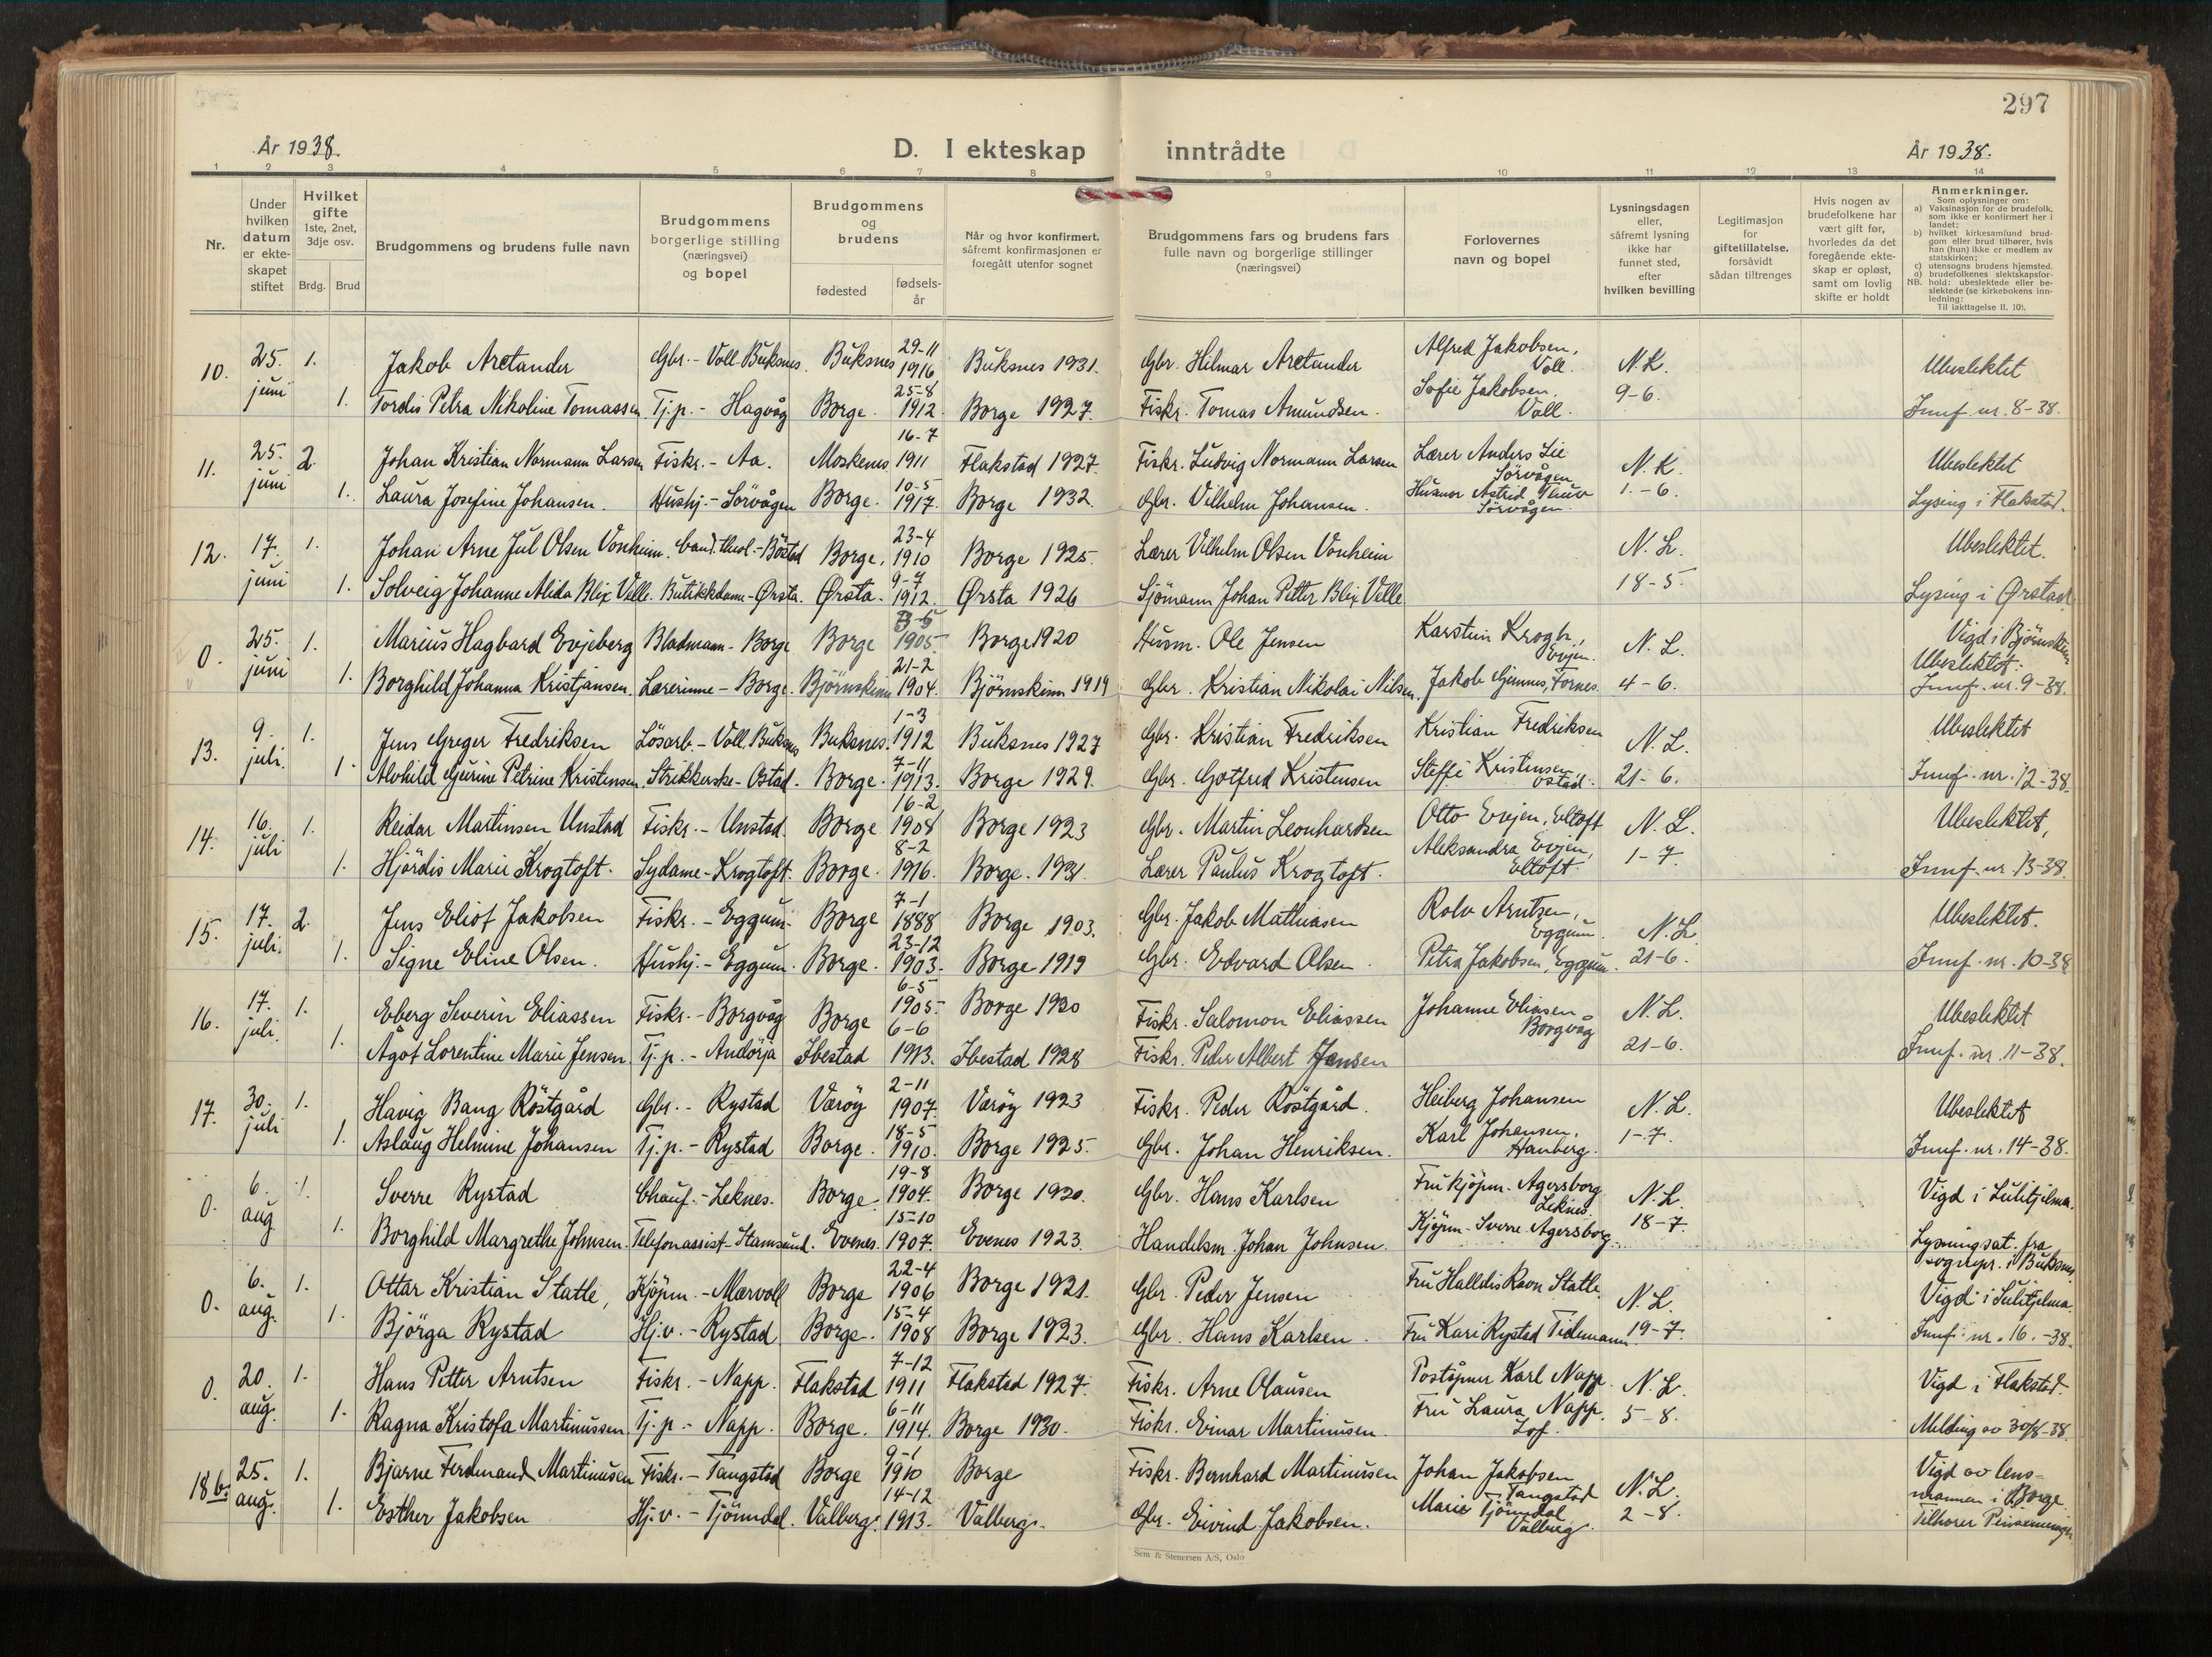 297
År 1938.
D. I ekteskap inntrådte
År 1938.
1 2 3 4 5 6 7 8 9 10 11 12 13 14
Nr.
Under hvilken datum er ekteskapet stiftet
Hvilket gifte 1ste, 2net, 3dje osv.
Brdg. Brud
Brudgommens og brudens fulle navn
Brudgommens borgerlige stilling (næringsvei) og bopel
Brudgommens og brudens
fødested
fødselsår
Når og hvor konfirmert, såfremt konfirmasjonen er foregått utenfor sognet
Brudgommens fars og brudens fars fulle navn og borgerlige stillinger (næringsvei)
Forlovernes navn og bopel
Lysningsdagen eller, såfremt lysning ikke har funnet sted, efter hvilken bevilling
Legitimasjon for giftetillatelse, forsåvidt sådan tiltrenges
Hvis nogen av brudefolkene har vært gift før, hvorledes da det foregående ekteskap er opløst, samt om lovlig skifte er holdt
Anmerkninger.
Som oplysninger om:
a) Vaksinasjon for de brudefolk, som ikke er konfirmert her i landet;
b) hvilket kirkesamfund brudgom eller brud tilhører, hvis han (hun) ikke er medlem av statskirken;
c) utensogns brudens hjemsted.
d) brudefolkenes slektskapsforhold: ubeslektede eller beslektede (se kirkebokens innledning:
NB. Til iakttagelse II. 10).
10. 25. juni 1. Jakob Arctander Gbr. - Voll. Buksnes. Buksnes 29-11 1916 Buksnes 1931. Gbr. Hilmar Arctander Alfred Jakobsen, Voll. N.L. Ubeslektet
1. Tordis Petra Nikoline Tomassen Tj.p. - Hagvåg Borge. 25-8 1912. Borge 1927. Fiskr. Tomas Amundsen. Sofie Jakobsen, Voll. 9-6. Innf. nr. 8-38.
11. 25. juni 2. Johan Kristian Normann Larsen Fiskr. - Aa. Moskenes 16-7 1911 Flakstad 1927. Fiskr. Ludvig Normann Larsen Lærer Anders Lie Sörvågen N.K. Ubeslektet
1. Laura Josefine Johansen. Hushj. - Sörvågen Borge. 10-5 1917. Borge 1932. Gbr. Vilhelm Johansen. Husmor Astrid Sörvågen. 1.-6. Lysing i Flakstad.
12. 17. juni 1. Johan Arne Jul Olsen Vonheim. Cand. theol. - Böstad Borge. 23-4 1910 Borge 1925. Lærer Vilhelm Olsen Vonheim N.L. Ubeslektet.
1. Solveig Johanne Alida Blix Velle. Butikkdame - Ørsta. Ørsta. 9-7 1912. Ørsta 1926 Sjömann Johan Petter Blix Velle. 18-5. Lysing i Ørstad
0. 25. juni 1. Marius Hagbard Evjeberg Bladmann - Borge Borge 1905. Borge 1920 Husm. Ole Jensen Karstein Krogh, Evjen. N.L. Vigd i Björnskinn Ubeslektet.
1. Borghild Johanna Kristjansen. Lærerinne - Borge. Björnskinn 21-2 1904. Björnskinn 1919 Gbr. Kristian Nikolai Nilsen. Jakob Gimnes, Fornes. 4-6. Innf. nr. 9-38.
13. 9. juli. 1. Jens Greger Fredriksen Lösarb. - Voll, Buksnes Buksnes. 1-3 1912 Buksnes 1927 Gbr. Kristian Fredriksen Kristian Fredriksen N.L. Ubeslektet
1. Alvhild Gjurine Petrine Kristensen. Strikkerske - Ostad. Borge. 7-11 1913. Borge 1929. Gbr. Gotfred Kristensen Steffi Kristensen Ostad. 21-6. Innf. nr. 12-38.
14. 16. juli 1. Reidar Martinsen Unstad Fiskr. - Unstad. Borge 16-2 1908 Borge 1923 Gbr. Martin Leonhardsen Otto Evjen, Eltoft N.L. Ubeslektet,
1. Hjördis Marie Krogtoft. Sydame - Krogtoft. Borge. 8-2 1916. Borge. 1931. Lærer Paulus Krogtoft. Aleksandra Evjen, Eltoft. 1-7. Innf. nr. 13-38.
15. 17. juli. 2. Jens Eliot Jakobsen Fiskr. - Eggum. Borge 7-1 1888 Borge 1903. Gbr. Jakob Mathiasen Rolv Arntzen, Eggum. N.L. Ubeslektet.
1. Signe Eline Olsen. Hushj. - Eggum. Borge. 23-12 1903. Borge 1919 Gbr. Edvard Olsen. Petra Jakobsen, Eggum. 21-6. Innf. nr. 10-38
16. 17. juli. 1. Eberg Severin Eliassen Fiskr. - Borgvåg Borge 6-5 1905. Borge 1920 Fiskr. Salomon Eliassen Johanne Eliasen Borgvåg N.L. Ubeslektet
1. Ågot Lorentine Marie Jensen Tj.p. - Andörja Ibestad 6-6 1913. Ibestad 1928 Fiskr. Peder Albert Jensen 21-6. Innf. nr. 11-38.
17. 30. juli 1. Havig Bang Röstgård Gbr. - Rystad Væröy 2-11 1907. Væröy 1923 Fiskr. Peder Röstgård. Heiberg Johansen N.L. Ubeslektet
1. Aslaug Helmine Johansen Tj.p. - Rystad Borge. 18-5 1910. Borge 1925. Gbr. Johan Henriksen. Karl Johansen, Hauberg. 1-7. Innf. nr. 14-38.
0. 6. aug 1. Sverre Rystad Chauf. - Leknes. Borge. 19-8 1904. Borge 1920. Gbr. Hans Karlsen Fru kjöpm. Agersborg Leknes. N.L. Vigd i Sulitjelma.
1. Borghild Margrethe Johnsen. Telefonassist - Stamsund. Evenes. 15-10 1907. Evenes 1923. Handelsm. Johan Johnsen. Kjöpm. Sverre Agersborg. 18-7. Lysningsat. fra sognepr. i Buksnes.
0. 6. aug. 1. Ottar Kristian Statle, Kjöpm. - Mærvoll Borge 22-4 1906 Borge 1921. Gbr. Peder Jensen Fru Halldis Ravn Statle. N.L. Vigd i Sulitjelma.
1. Björga Rystad Hj.v. - Rystad. Borge. 15-4 1908 Borge 1923. Gbr. Hans Karlsen. Fru Kari Rystad Tidemann 19-7. Innf. nr. 16.-38.
0. 20. aug. 1. Hans Petter Arntsen Fiskr. - Napp. Flakstad 7-12 1911 Flakstad 1927. Fiskr. Arne Olausen Poståpner Karl Napp. N.L. Vigd i Flakstad.
1. Ragna Kristofa Martinussen. Tj.p. - Napp. Borge. 6-11 1914. Borge 1930. Fiskr. Einar Martinusen. Fru Laura Napp. Lof. 5-8. Melding av 30/8-38.
18 b. 25. aug. 1. Bjarne Ferdinand Martinusen Fiskr. - Tangstad Borge 9-1 1910 Borge Fiskr. Bernhard Martinussen Johan Jakobsen Tangstad N.L. Vigd av lensmannen i Borge.
1. Esther Jakobsen Hj.v. - Tjönndal. Valberg. 14-12 1913. Valberg. Gbr. Eivind Jakobsen. Marie Tjönndal Valberg. 2-8. Tilhører
Sem & Stenersen A/S, Oslo